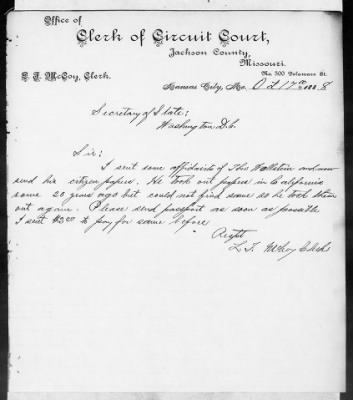 Office of
Clerk of Circuit Court,
Jackson County,
Missouri.
L. F. McCoy, Clerk.
No. 300 Delaware St.
Kansas City, Mo. Oct 17th 1888
Secretary of State;
Washington D.C.
Sir:
I sent some affidavits of and now
send his citizen papers. He took out papers in California
some 20 years ago but could not find same so he took them
out again. Please send passport as soon as possible
I sent $5.00 to pay for same before
Respt
L. F. McCoy Clerk